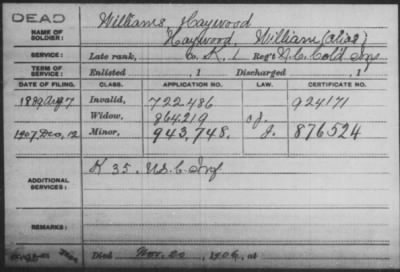 DEAD
Williams, Haywood
NAME OF SOLDIER: Haywood, William (alias)
SERVICE: Late rank, Co. K, 1 Reg't N.C. Col'd Inf
TERM OF SERVICE: Enlisted , 1 Discharged , 1
DATE OF FILING. CLASS. APPLICATION NO. LAW. CERTIFICATE NO.
1889 Aug 7 Invalid, 722486 924171
Widow, 864219
1907 Dec, 12 Minor, 943,748. 876524
ADDITIONAL SERVICES: K 35. U.S.C. Inf
REMARKS:
Died Nov. 20, 1906, at